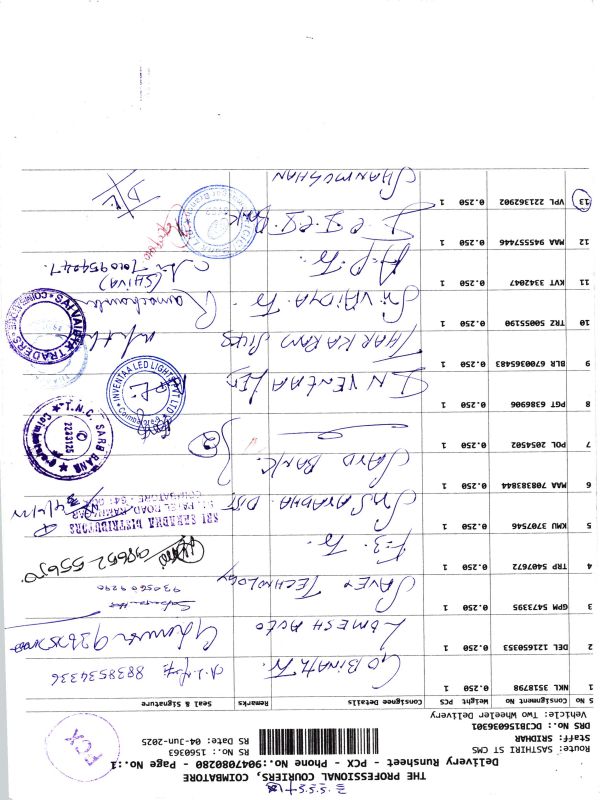 THE PROFESSIONAL COURIERS, COIMBATORE
Delivery Runsheet - PCX - Phone No.:9047080280 - Page No.:1
Route: SASTHIRI ST CMS
Staff: SRIDHAR
DRS No: DCB156036301
Vehicle: Two Wheeler Delivery
RS No.: 1560363
RS Date: 04-Jun-2025
S No Consignment No Weight PCS Consignee Details Remarks Seal & Signature
1 NKL 3518798 0.250 1 GOBINATH Tr. 8838534336
2 DEL 121650353 0.250 1 LOMESH AUTO
3 GPM 5473395 0.250 1 SAVEX TECHNOLOGY 9305609290
4 TRP 5407672 0.250 1 F-3. Tr. 98652 55650
5 KMU 3707546 0.250 1 SRI SARADHA DIST
SRI SARADHA DISTRIBUTORS
COIMBATORE
6 MAA 708383844 0.250 1 SARVO BANK
7 POL 2054502 0.250 1
T.N.C. SARB BANK
Coimbatore
8 PGT 6386906 0.250 1 INVENTAA LED
INVENTAA LED LIGHT PVT LTD
9 BLR 6700365483 0.250 1 THARKARAM SILKS
10 TRZ 5005190 0.250 1 Sri VAIDYA Tr. Ramachandran
SAIVAIDYA TRADERS COIMBATORE
11 KVT 3342047 0.250 1 A.P. Tr. (SHIVA)
7010954047
12 MAA 945557446 0.250 1 BANK
13 VPL 221362902 0.250 1 SHANMUGHAN D/L